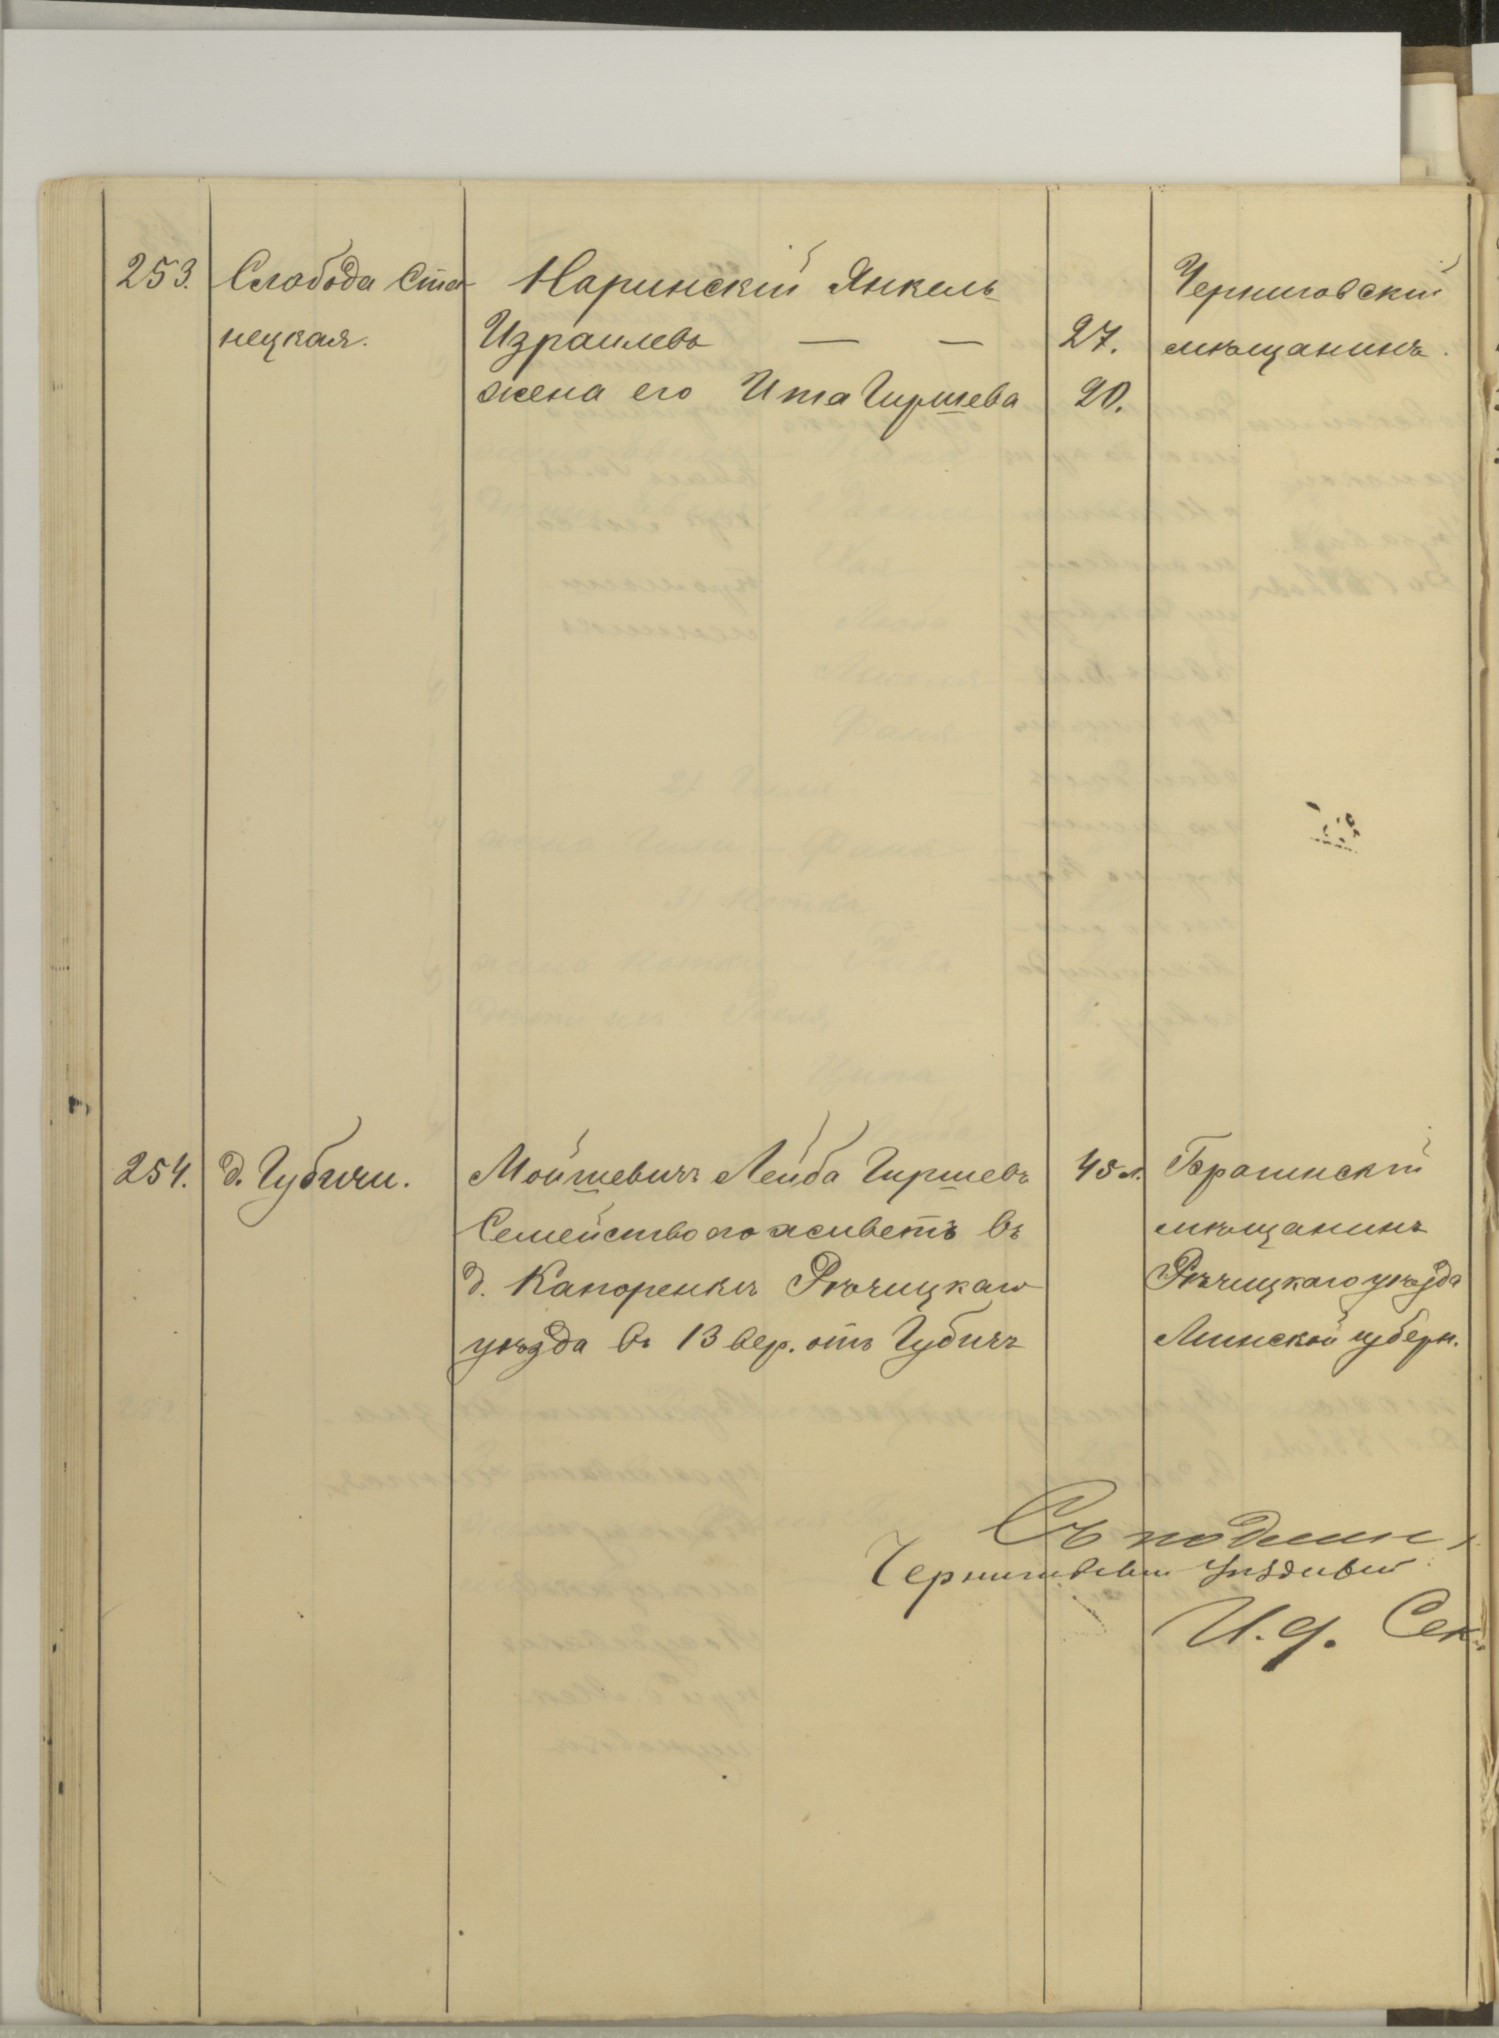 253. Слобода Ста-
нецкая.
Наринскій Янкель
Израилевъ — — 27.
жена его Ита Гиршева 20.
Черниговскій
мѣщанинъ.
254. д. Губичи.
Мойшевичъ Лейба Гиршевъ 45 л.
Семейство его живетъ въ
д. Капоренкѣ Рѣчицкаго
уѣзда въ 13 вер. отъ Губичъ
Брагинскій
мѣщанинъ
Рѣчицкаго уѣзда
Минской губерн.
Съ подлин
Черниговскій Уѣздный
И. д. Сек